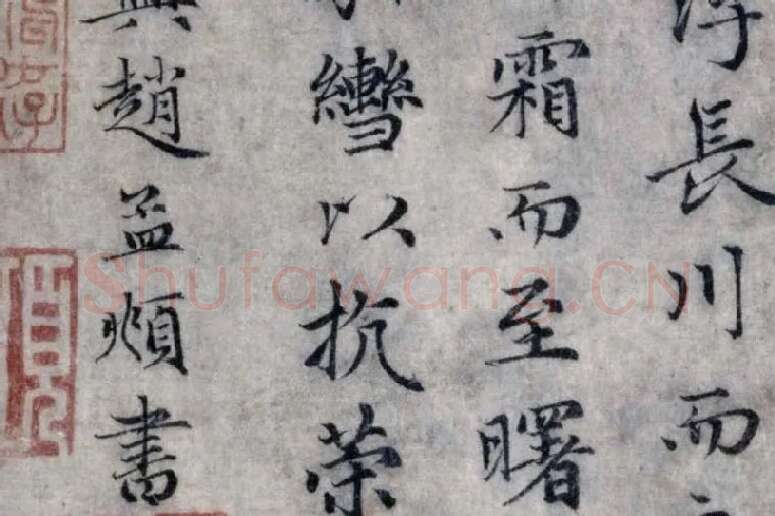 浮長川而
霜而至曙
轡以抗策
趙孟頫書
Shufawang.CN